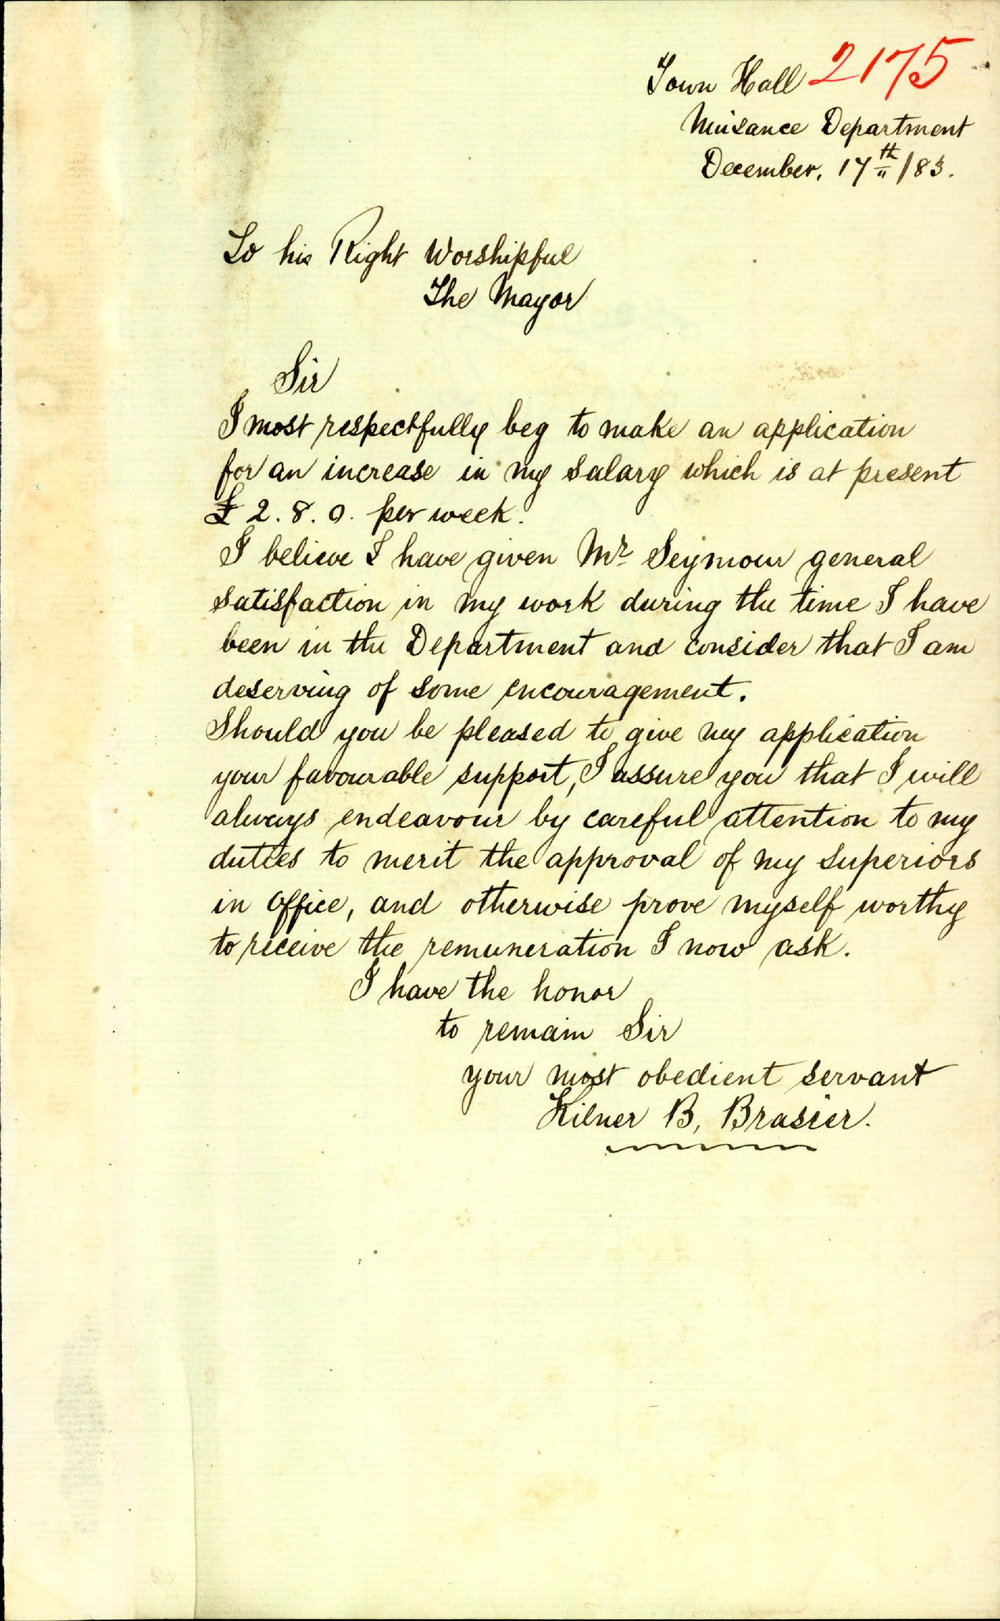 Town Hall 2175
Nuisance Department
December. 17th /83.
To his Right Worshipful
The Mayor
Sir
I most respectfully beg to make an application
for an increase in my salary which is at present
£ 2. 8. 0. per week.
I believe I have given Mr Seymour general
satisfaction in my work during the time I have
been in the Department and consider that I am
deserving of some encouragement.
Should you be pleased to give my application
your favourable support, I assure you that I will
always endeavour by careful attention to my
duties to merit the approval of my superiors
in office, and otherwise prove myself worthy
to receive the remuneration I now ask.
I have the honor
to remain Sir
your most obedient servant
Kilner B. Brasier.